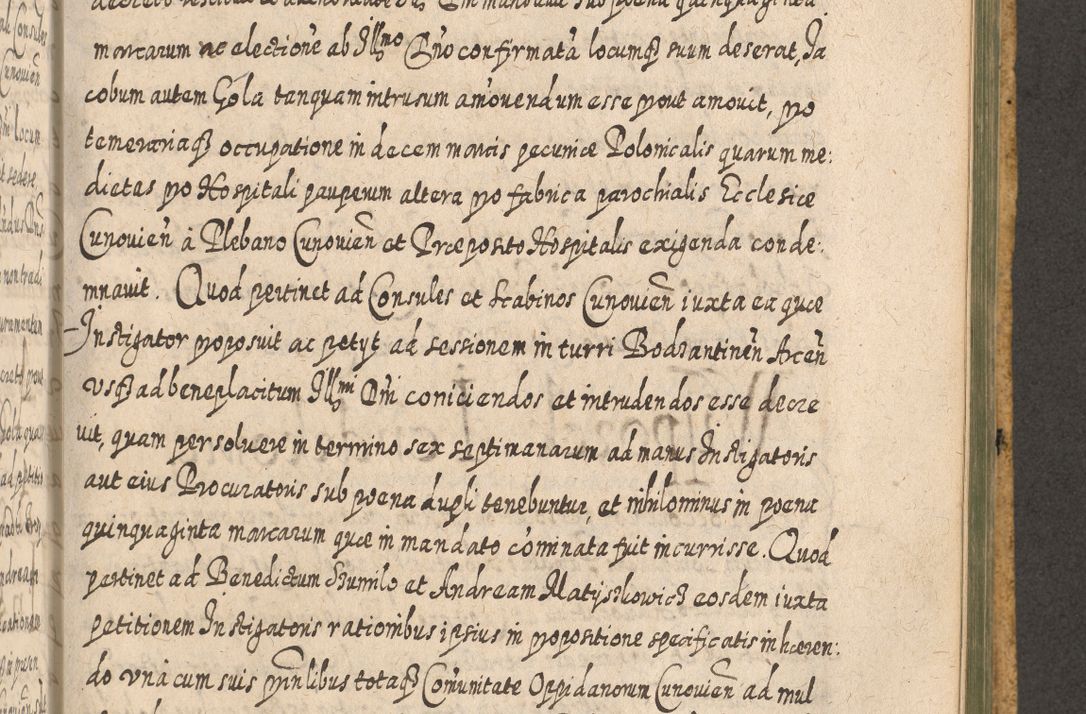 marcarum ac electione ab Illmo Dno confirmata locumq suum deserat, Ja
cobum autem Gola tanquam intrusum amovendum esse prout amovit, pro
temerariaq occupatione in decem marcis pecuniæ Polonicalis quarum me:
dietas pro Hospitali pauperum altera pro fabrica parochialis Ecclesiæ
Cunovien à Plebano Cunovien et Præposito Hospitalis exigenda conde:
mnavit. Quod pertinet ad Consules et Scabinos Cunovien iuxta ea quæ
Instigator proposuit ac petyt ad sessionem in turri Bodzantinen Arcen
vsq ad beneplacitum Illmi Dni coniciendos et intrudendos esse decre
vit, quam persolvere in termino sex septimanarum ad manus Instigatoris
aut eius Procuratoris sub poena dupli tenebuntur, et nihilominus in poena
quinquaginta marcarum quæ in mandato cominata fuit incurrisse. Quod
pertinet ad Benedictum Szumilo et Andream Matyszkowicz eosdem iuxta
petitionem Instigatoris rationibus ipsius in propositione specificatis inhæren:
do vna cum suis prinlibus totaq Comunitate Oppidanorum Cunovien ad mul